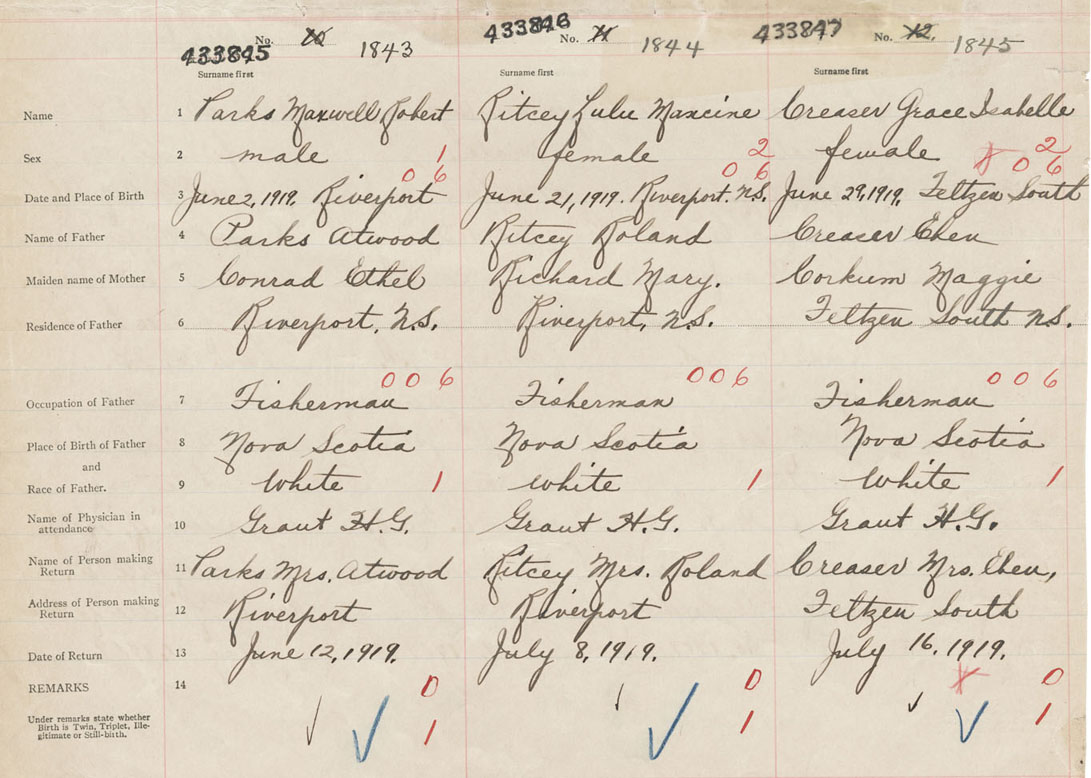 433845 No. 10 1843 433846 No. 11 1844 433847 No. 12. 1845
Surname first Surname first Surname first
Name 1 Parks Maxwell Robert Ritcey Lulu Maxcine Creaser Grace Isabelle
Sex 2 male 1 female 2 female 2
0 6 0 6 0 6
Date and Place of Birth 3 June 2, 1919. Riverport June 21, 1919. Riverport. N.S. June 29, 1919. Feltzen South
Name of Father 4 Parks Atwood Ritcey Roland Creaser Eben
Maiden name of Mother 5 Conrad Ethel Richard Mary. Corkum Maggie
Residence of Father 6 Riverport, N.S. Riverport, N.S. Feltzen South N.S.
0 0 6 0 0 6 0 0 6
Occupation of Father 7 Fisherman Fisherman Fisherman
Place of Birth of Father 8 Nova Scotia Nova Scotia Nova Scotia
and
Race of Father. 9 White 1 White 1 White 1
Name of Physician in
attendance 10 Grant H.G. Grant H.G. Grant H.G.
Name of Person making
Return 11 Parks Mrs. Atwood Ritcey Mrs. Roland Creaser Mrs. Eben,
Address of Person making
Return 12 Riverport Riverport Feltzen South
Date of Return 13 June 12, 1919. July 8, 1919. July 16, 1919.
REMARKS 14 0 0 0
Under remarks state whether
Birth is Twin, Triplet, Ille-
gitimate or Still-birth. 1 1 1